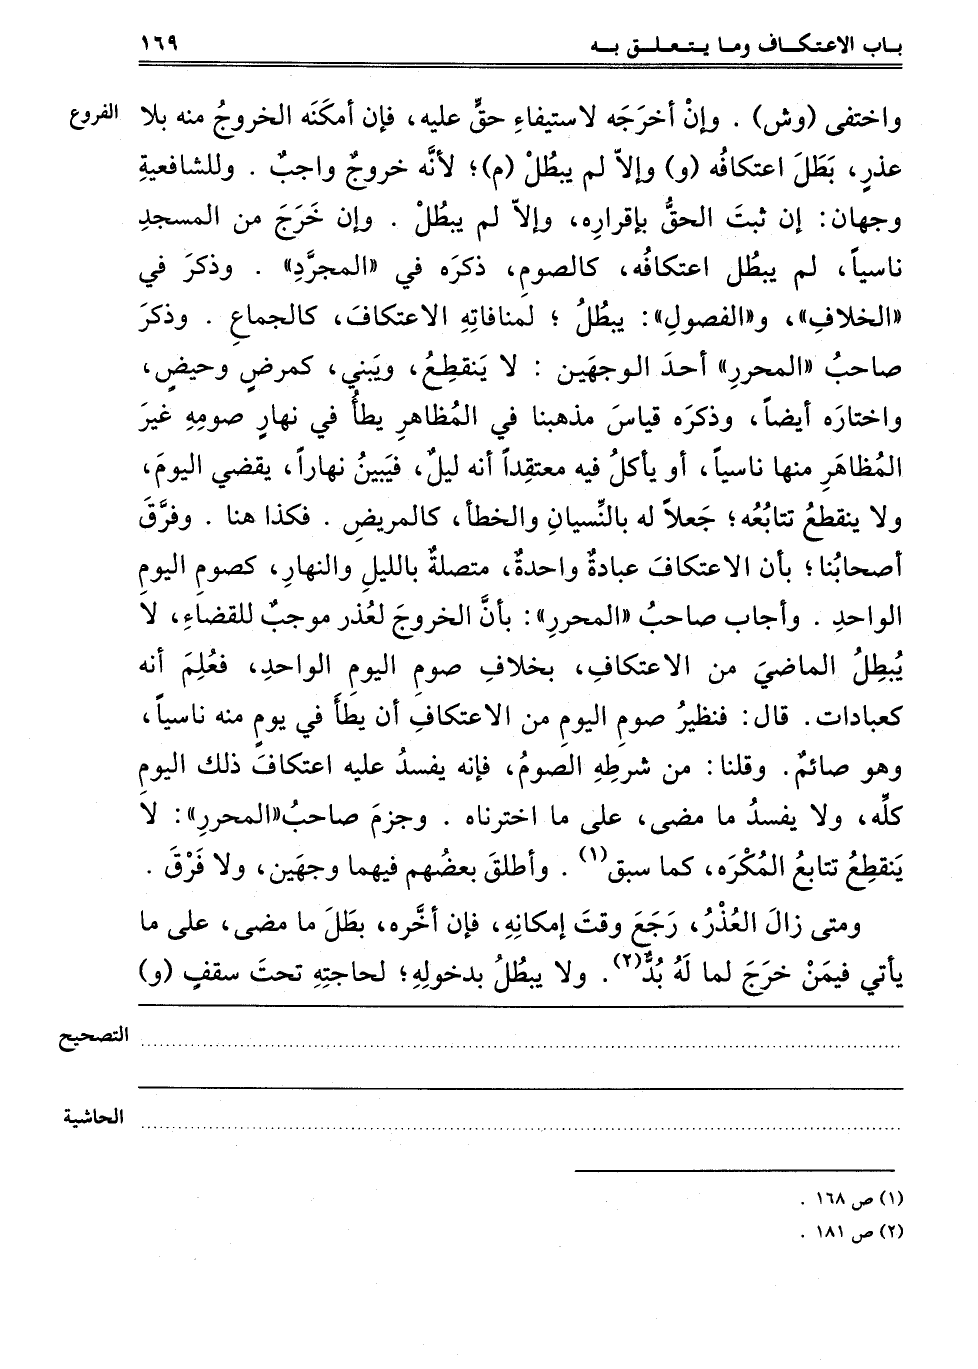 بـاب الاعـتـكـــاف ومـا يـتـعـلـــق بـــه ١٦٩
واختفى (وش) . وإنْ أخرَجَه لاستيفاءِ حقٍّ عليه، فإن أمكَنَه الخروجُ منه بلا الفروع
عذرٍ، بَطَلَ اعتكافُه (و) وإلاّ لم يبطُلْ (م)؛ لأنَّه خروجٌ واجبٌ . وللشافعيةِ
وجهان: إن ثبتَ الحقُّ بإقرارِه، وإلاّ لم يبطُلْ . وإن خَرَجَ من المسجدِ
ناسياً، لم يبطُل اعتكافُه، كالصومِ، ذكرَه في «المجرَّدِ» . وذكرَ في
«الخلافِ»، و«الفصولِ»: يبطُلُ ؛ لمنافاتِهِ الاعتكافَ، كالجماعِ . وذكرَ
صاحبُ «المحررِ» أحدَ الوجهَين : لا يَنقطِعُ، ويَبني، كمرضٍ وحيضٍ،
واختارَه أيضاً، وذكرَه قياسَ مذهبنا في المُظاهرِ يطأُ في نهارِ صومِهِ غيرَ
المُظاهَرِ منها ناسياً، أو يأكلُ فيه معتقِداً أنه ليلٌ، فيَبينُ نهاراً، يقضي اليومَ،
ولا ينقطعُ تتابُعُه؛ جَعلاً له بالنِّسيانِ والخطأ، كالمريضِ . فكذا هنا . وفرَّقَ
أصحابُنا؛ بأن الاعتكافَ عبادةٌ واحدةٌ، متصلةٌ بالليلِ والنهارِ، كصومِ اليومِ
الواحدِ . وأجاب صاحبُ «المحررِ»: بأنَّ الخروجَ لعُذر موجبٌ للقضاءِ، لا
يُبطِلُ الماضيَ من الاعتكافِ، بخلافِ صومِ اليومِ الواحدِ، فعُلِمَ أنه
كعبادات. قال: فنظيرُ صومِ اليومِ من الاعتكافِ أن يطَأَ في يومٍ منه ناسياً،
وهو صائمٌ. وقلنا: من شرطِهِ الصومُ، فإنه يفسدُ عليه اعتكافَ ذلك اليومِ
كلِّه، ولا يفسدُ ما مضى، على ما اخترناه . وجزمَ صاحبُ«المحررِ»: لا
يَنقطِعُ تتابعُ المُكْرَه، كما سبق(١) . وأطلقَ بعضُهم فيهما وجهَين، ولا فَرْقَ .
ومتى زالَ العُذْرُ، رَجَعَ وقتَ إمكانِهِ، فإن أخَّره، بطَلَ ما مضى، على ما
يأتي فيمَنْ خرَجَ لما لَهُ بُدٌّ(٢). ولا يبطُلُ بدخولِهِ؛ لحاجتِهِ تحتَ سقفٍ (و)
التصحيح
الحاشية
(١) ص ١٦٨ .
(٢) ص ١٨١ .